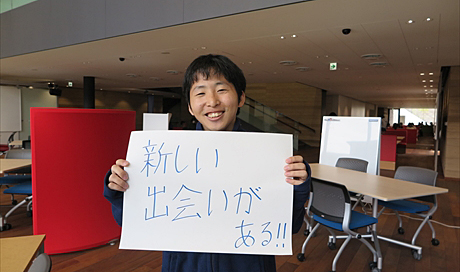 新しい
出会いが
ある!!